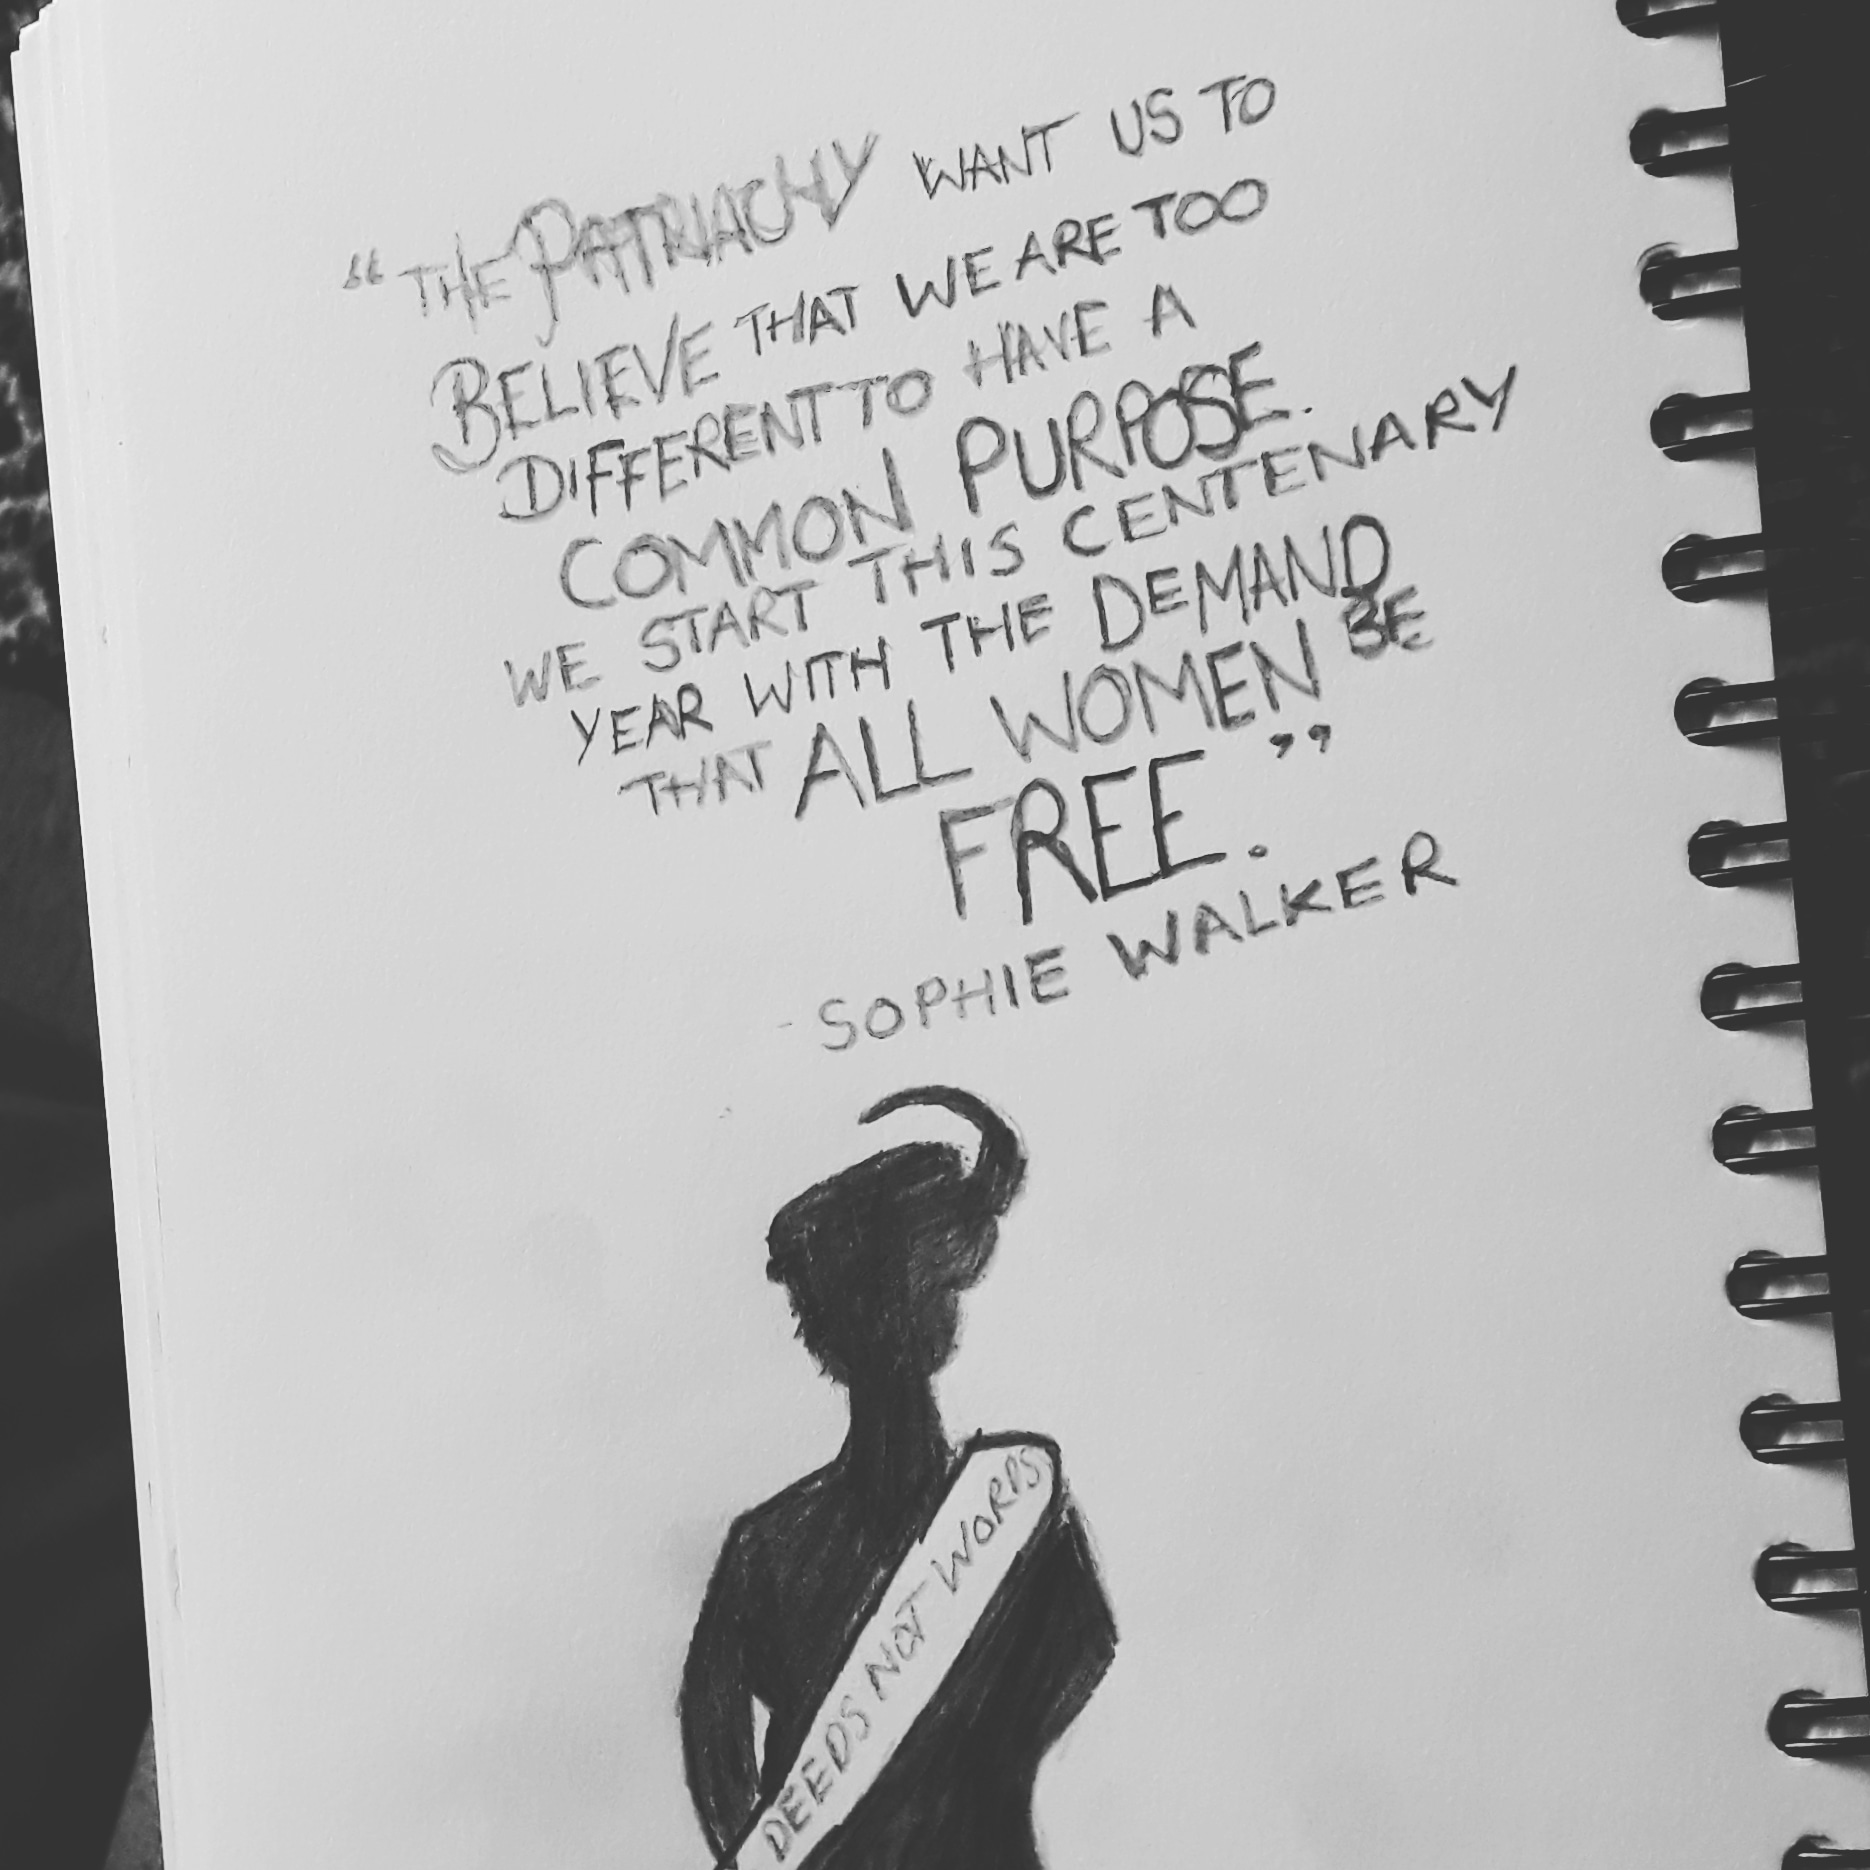 “THE PATRIACHY WANT US TO
BELIEVE THAT WE ARE TOO
DIFFERENT TO HAVE A
COMMON PURPOSE.
WE START THIS CENTENARY
YEAR WITH THE DEMAND
THAT ALL WOMEN BE
FREE.”
- SOPHIE WALKER
DEEDS NOT WORDS